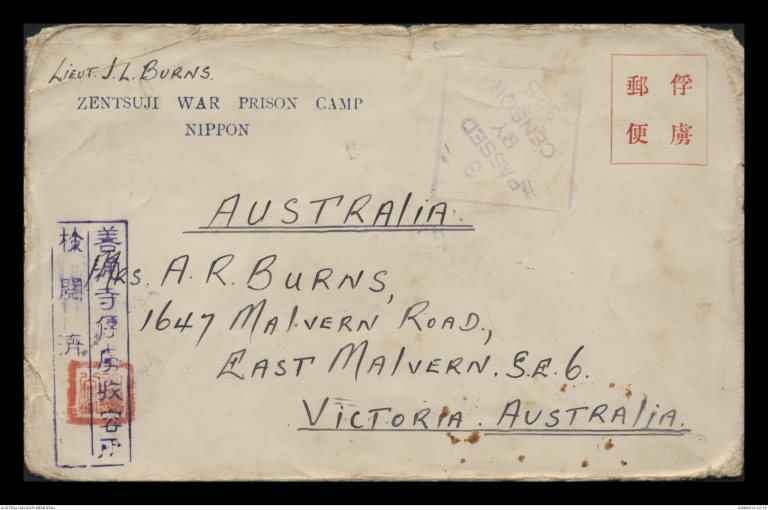 Lieut. J. L. Burns.
ZENTSUJI WAR PRISON CAMP
NIPPON
俘虜
郵便
PASSED
BY
CENSOR
325
3
AUSTRALIA.
Mrs. A. R. Burns,
1647 Malvern Road,,
East Malvern. S.E.6.
Victoria. Australia.
善通寺俘虜收容所
検閲濟
AUSTRALIAN WAR MEMORIAL